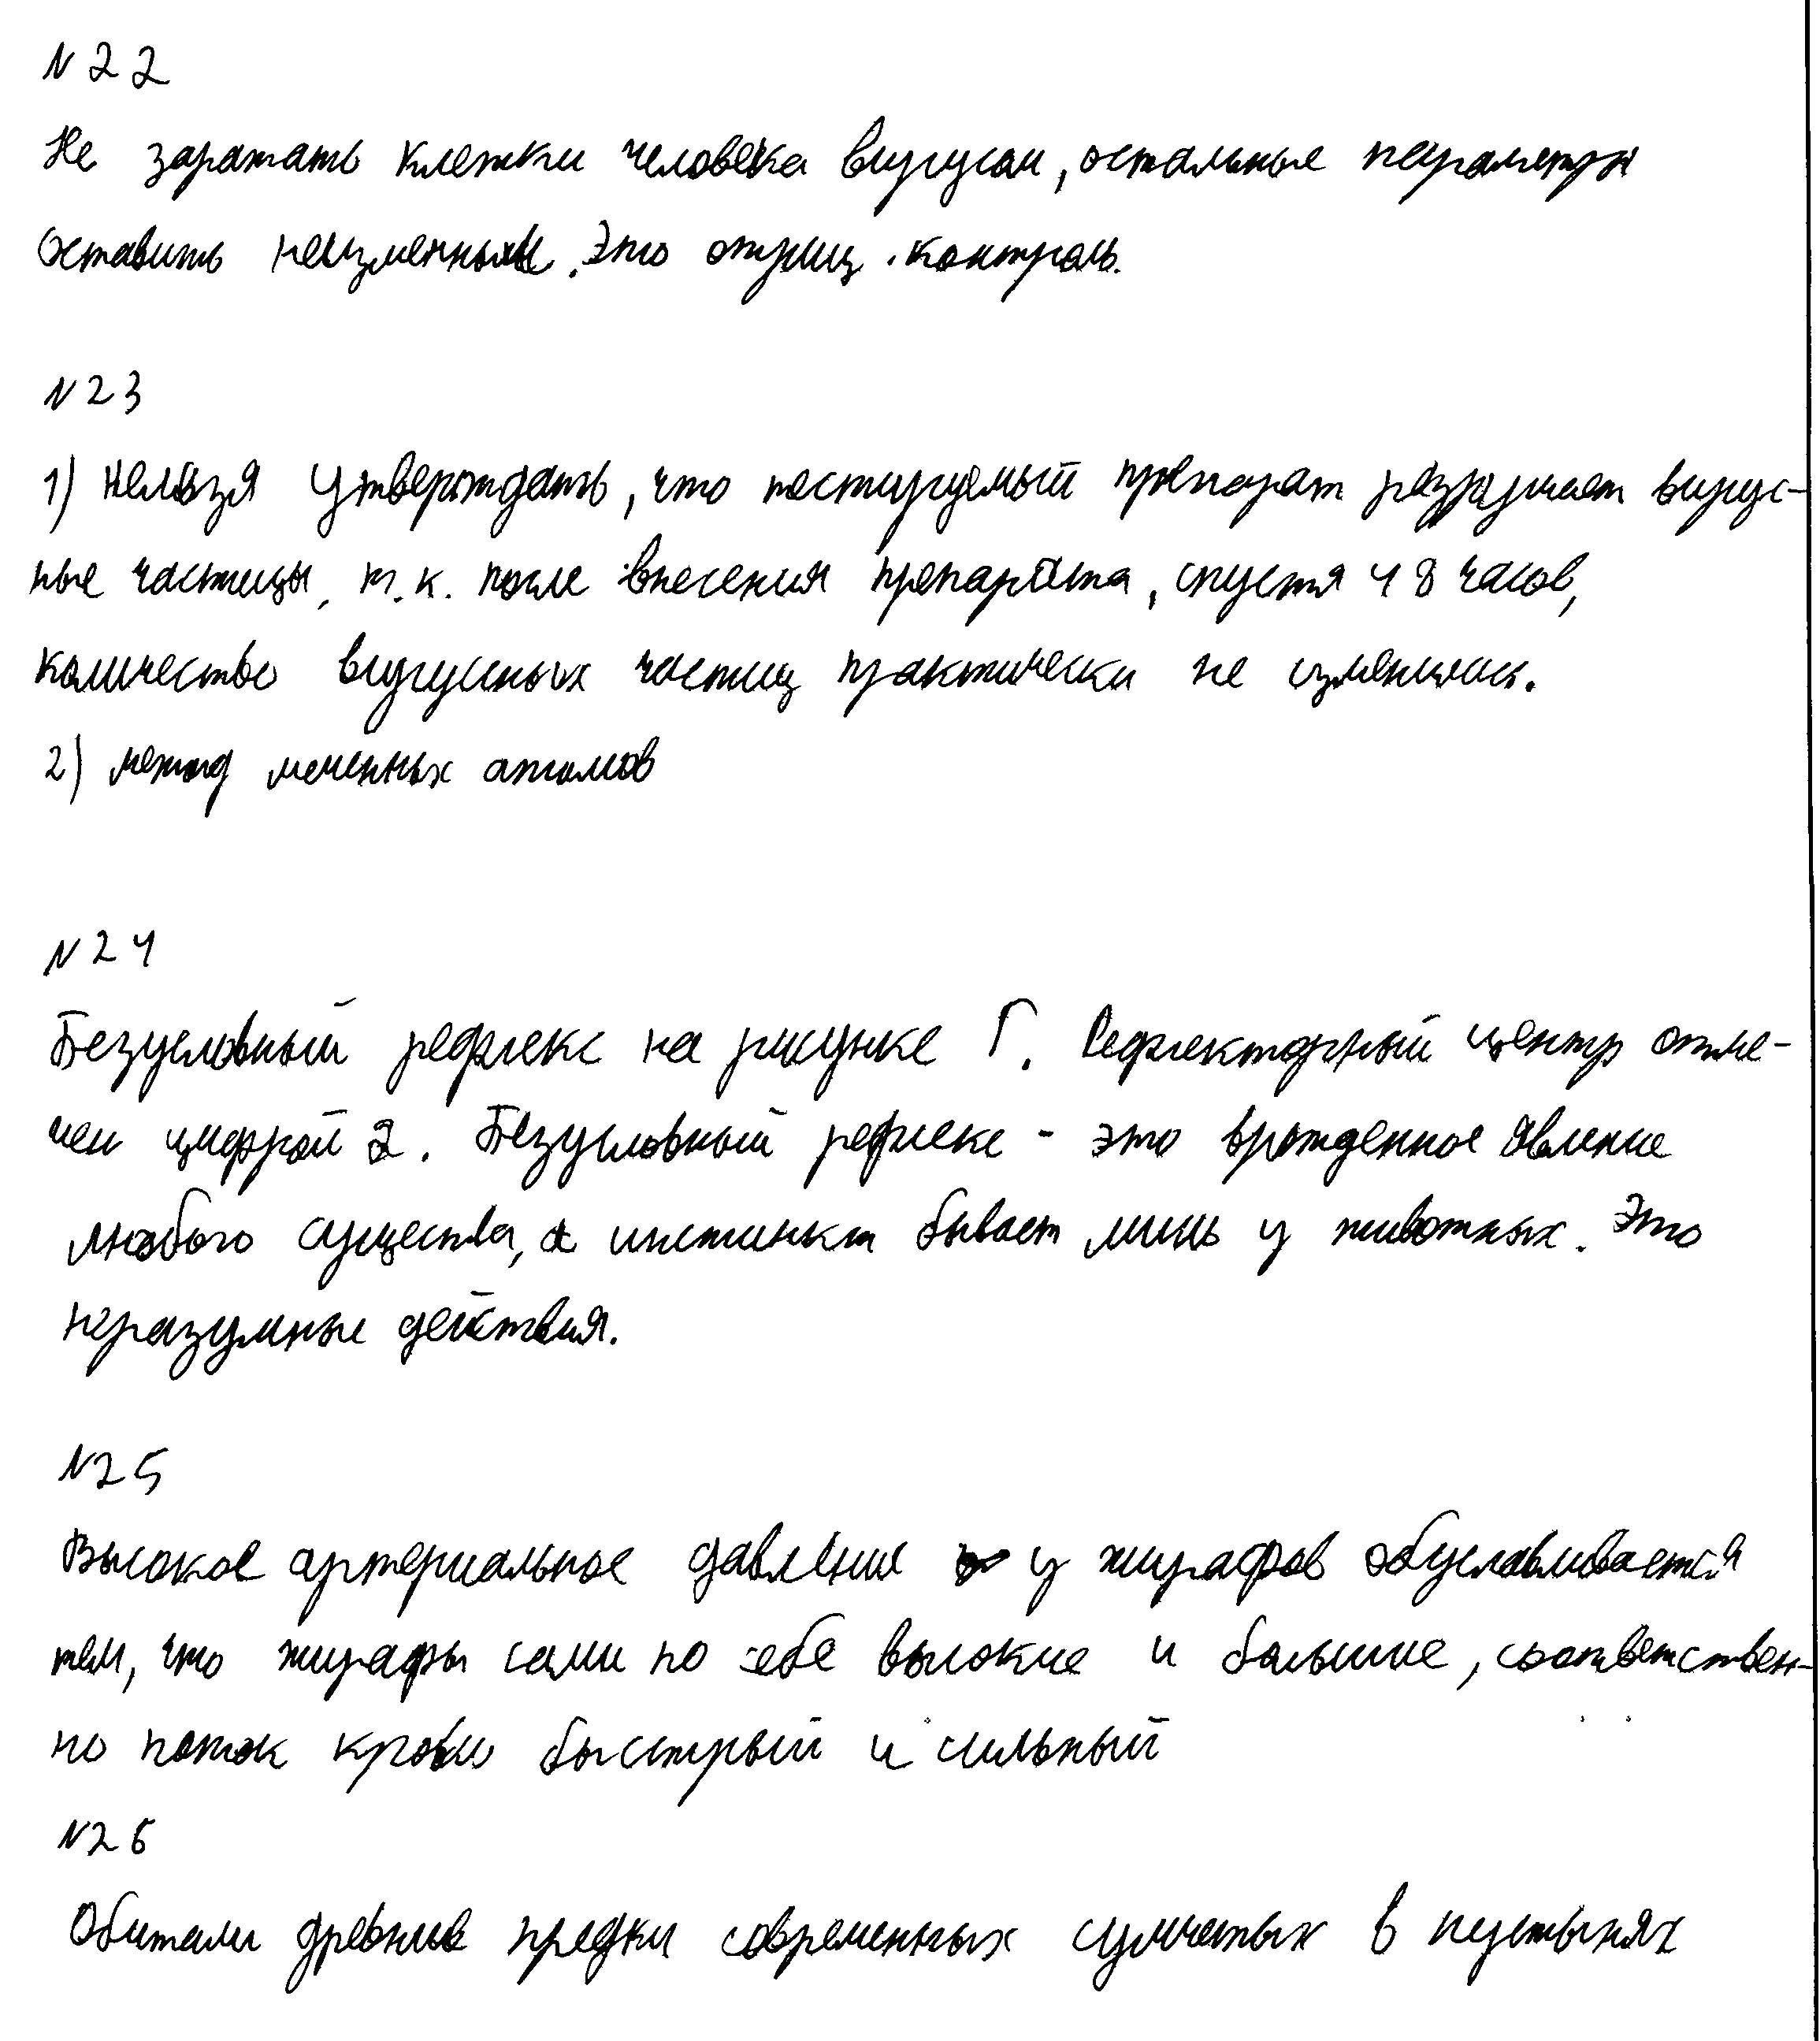 N 22
Не заражать клетки человека вирусом, остальные параметры
оставить неизменными. Это отриц. контроль.
N 23
1) Нельзя утверждать, что тестируемый препарат разрушает вирус-
ные частицы, т.к. после внесения препарата, спустя 48 часов,
количество вирусных частиц практически не изменилось.
2) метод меченных атомов
N 24
Безусловный рефлекс на рисунке Г. Рефлекторный центр отме-
чен цифрой 2. Безусловный рефлекс - это врожденное явление
любого существа, а инстинкт бывает лишь у животных. Это
неразумные действия.
N 25
Высокое артериальное давление у жирафов обуславливается
тем, что жирафы сами по себе высокие и большие, соответствен-
но поток крови быстрый и сильный
N 26
Обитали древние предки современных сумчатых в пустынях